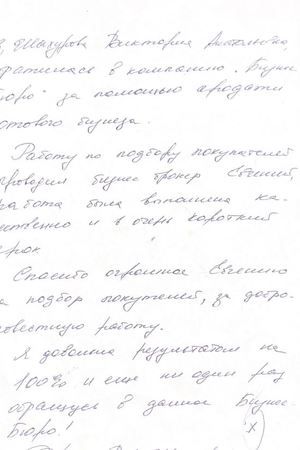 Шахурова Виктория Анатольевна,
братилась в компанию „Бизнес
Бюро" за помощью продати
отового бизнеса.
Работу по подбору покупателей
проводил бизнес брокер Евгений,
работа была выполнена ка-
ественно и в очень короткий
срок
Спасибо огромное Евгению
а подбор покупателей, за добро-
овестную работу.
Я довольна результатом на
100% и еще ни один раз
обращусь в данное Бизнес
Бюро!